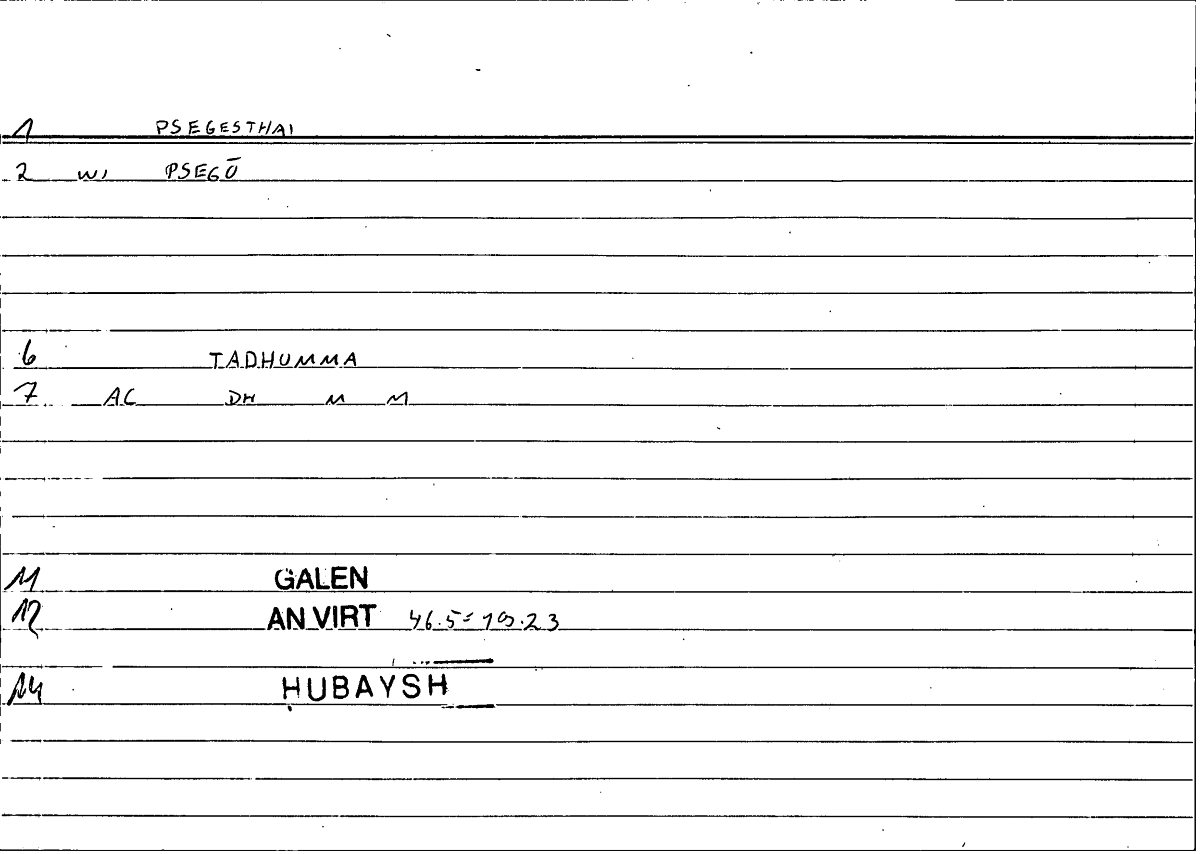 1 PSEGESTHAI
2 WI PSEGŌ
6 TADHUMMA
7 AC DH M M
11 GALEN
12 AN VIRT 46.5=19.23
14 HUBAYSH